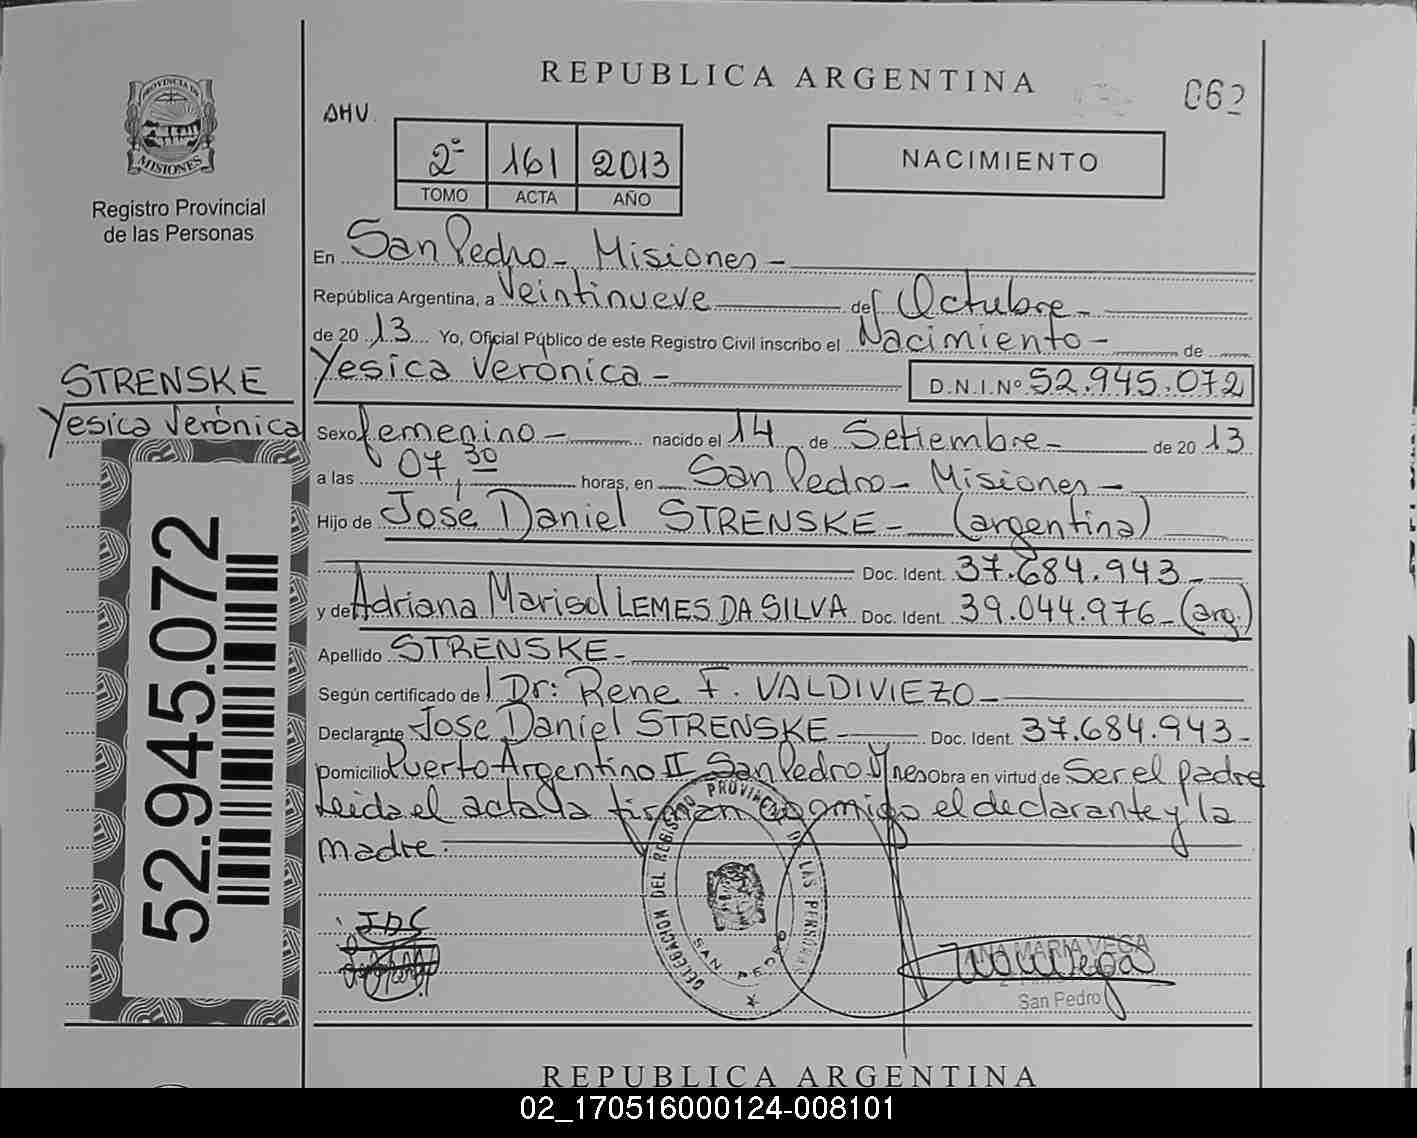 REPUBLICA ARGENTINA
062
PROVINCIA DE
MISIONES
Registro Provincial
de las Personas
AHV.
2º 161 2013
TOMO ACTA AÑO
NACIMIENTO
En San Pedro - Misiones -
República Argentina, a Veintinueve de Octubre -
de 20 13 Yo, Oficial Público de este Registro Civil inscribo el Nacimiento - de
Yesica Verónica - D.N.I.Nº 52.945.072
STRENSKE
Yesica Verónica
Sexo femenino - nacido el 14 de Setiembre - de 20 13
a las 07, 30 horas, en San Pedro - Misiones -
Hijo de José Daniel STRENSKE - (argentina)
Doc. Ident. 37.684.943 -
y de Adriana Marisol LEMES DA SILVA Doc. Ident. 39.044.976 - (arg.)
Apellido STRENSKE -
Según certificado de Dr: Rene F. VALDIVIEZO -
Declarante Jose Daniel STRENSKE - Doc. Ident. 37.684.943 -
Domicilio Puerto Argentino II San Pedro Mnes Obra en virtud de Ser el padre
Leida el acta la firman conmigo el declarante y la
madre.
52.945.072
JDS
DELEGACION DEL REGISTRO PROVINCIAL DE LAS PERSONAS
SAN PEDRO
ANA MARIA VEGA
San Pedro
REPUBLICA ARGENTINA
02_170516000124-008101